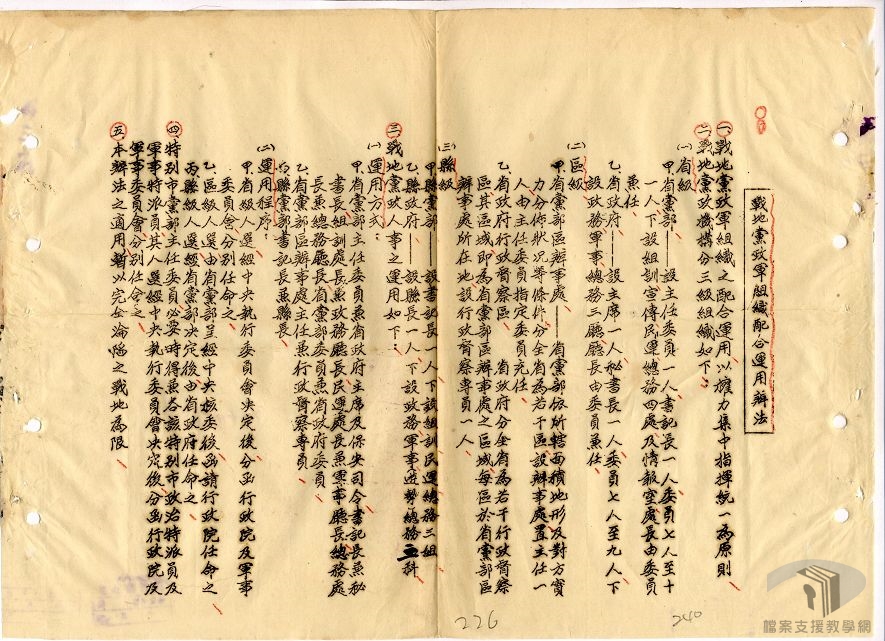 戰地黨政軍組織配合運用辦法
一、戰地黨政軍組織之配合運用以權力集中指揮統一為原則
二、戰地黨政機構分三級組織如下：
(一)省級
甲、省黨部——設主任委員一人書記長一人委員七人至十
一人下設組訓宣傳民運總務四處及情報室處長由委員
兼任
乙、省政府——設主席一人秘書長一人委員七人至九人下
設政務軍事總務三廳廳長由委員兼任
(二)區級
甲、省黨部區辦事處——省黨部依所轄面積地形及對方實
力分佈狀況等條件分全省為若干區設辦事處置主任一
人由主任委員指定委員充任
乙、省政府行政督察區——省政府分全省為若干行政督察
區其區域即為省黨部區辦事處之區域每區於省黨部區
辦事處所在地設行政督察專員一人
(三)縣級
甲、縣黨部——設書記長一人下設組訓民運總務三組
乙、縣政府——設縣長一人下設政務軍事總務三科
三、戰地黨政人事之運用如下：
(一)運用方式：
甲、省黨部主任委員兼省政府主席及保安司令書記長兼秘
書長組訓處長兼政務廳長民運處長兼軍事廳長總務處
長兼總務廳長省黨部委員兼省政府委員
乙、省黨部區辦事處主任兼行政督察專員
丙、縣黨部書記長兼縣長
(二)運用程序：
甲、省級人選經中央執行委員會決定後分函行政院及軍事
委員會分別任命之
乙、區級人選由省黨部呈經中央核委後函請行政院任命之
丙、縣級人選經省黨部決定後由省政府任命之
四、特別市黨部主任委員必要時得兼各該特別市政治特派員及
軍事特派員其人選經中央執行委員會決定後分函行政院及
軍事委員會分別任命之
五、本辦法之適用暫以完全淪陷之戰地為限
226
240
檔案支援教學網